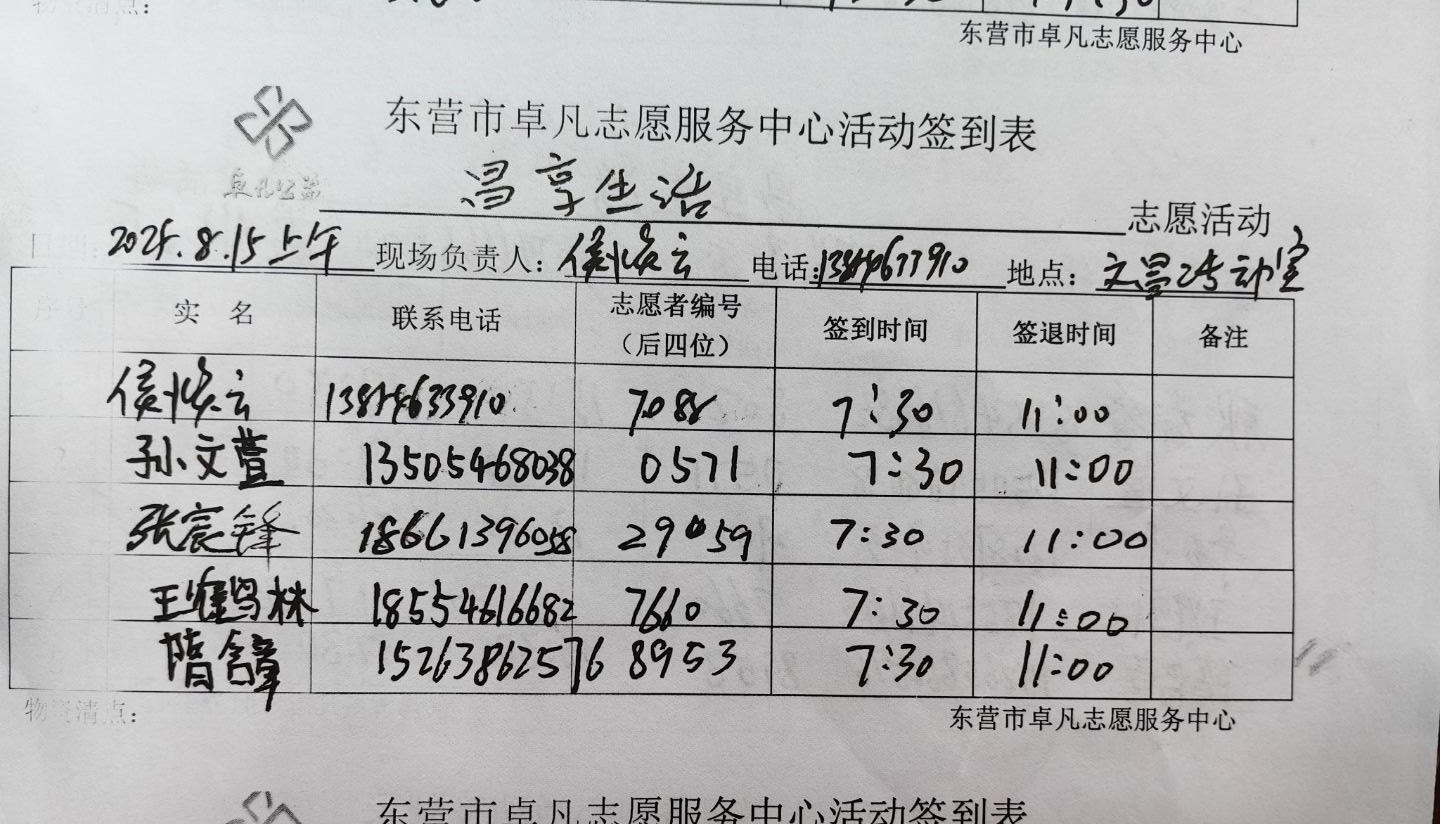 物资清点：
东营市卓凡志愿服务中心
东营市卓凡志愿服务中心活动签到表
卓凡公益
昌享生活 志愿活动
日期：2025.8.15上午 现场负责人：侯俊云 电话： 地点：文昌活动室
序号 实 名 联系电话 志愿者编号（后四位） 签到时间 签退时间 备注
侯俊云 7088 7:30 11:00
孙文萱 13505468038 0571 7:30 11:00
张宸锋 18661396058 29 59 7:30 11:00
王鹤林 18554616682 7660 7:30 11:00
隋含章 15263862576 8953 7:30 11:00
物资清点：
东营市卓凡志愿服务中心
东营市卓凡志愿服务中心活动签到表